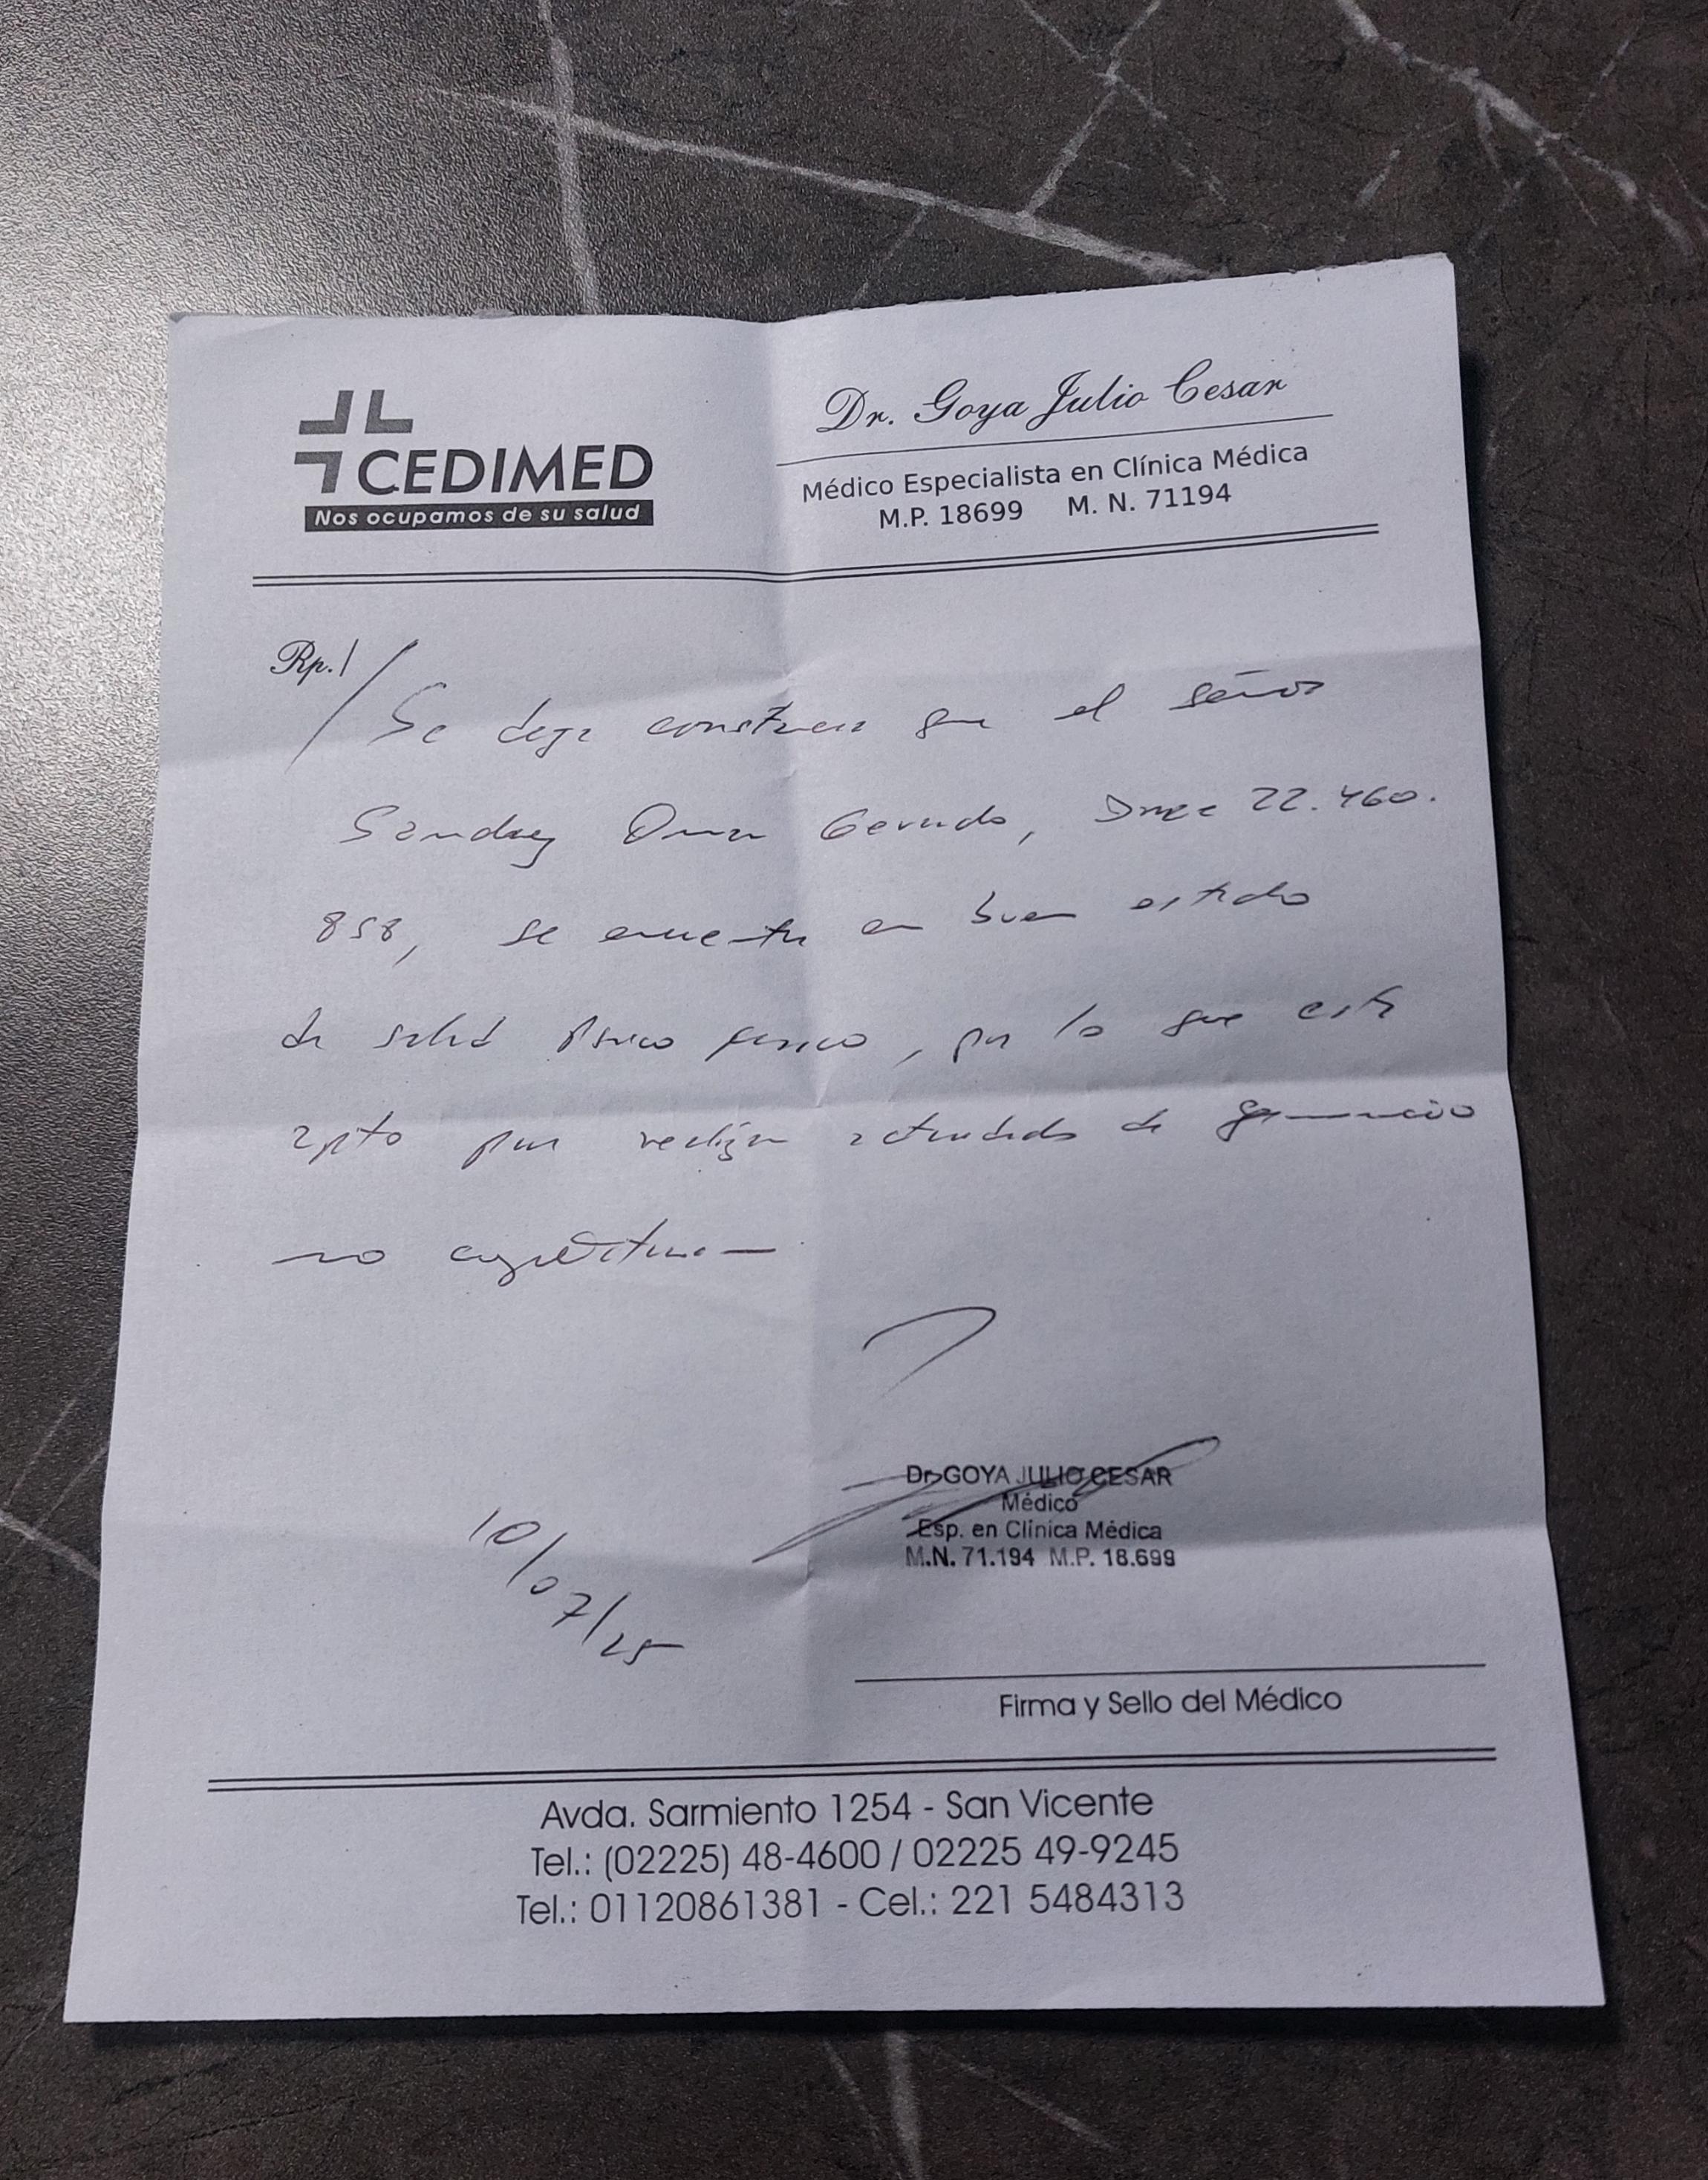 CEDIMED
Nos ocupamos de su salud
Dr. Goya Julio Cesar
Médico Especialista en Clínica Médica
M.P. 18699 M. N. 71194
Rp./
Se deja constancia que el señor
Omar Gerardo, 22.460.
858, se encuentra en buen estado
de salud psico fisico, por lo que está
apto para realizar actividades de gimnasio
no competitivo.
10/07/25
Dr. GOYA JULIO CESAR
Médico
Esp. en Clínica Médica
M.N. 71.194 M.P. 18.699
Firma y Sello del Médico
Avda. Sarmiento 1254 - San Vicente
Tel.: (02225) 48-4600 / 02225 49-9245
Tel.: 01120861381 - Cel.: 221 5484313